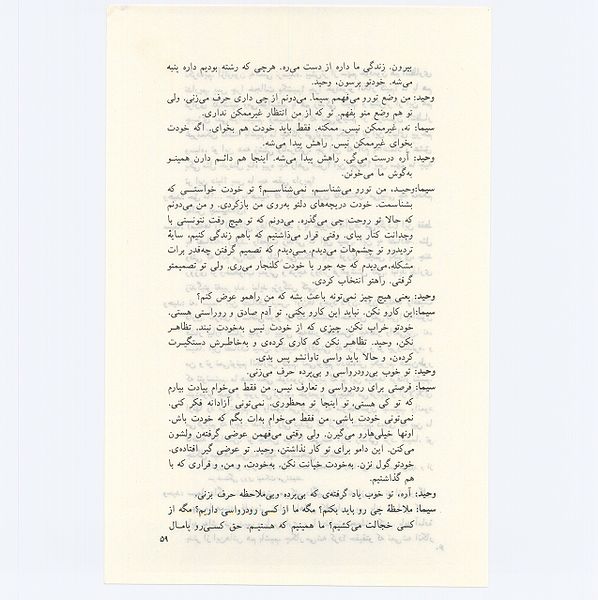 بیرون. زندگی ما داره از دست می‌ره. هرچی که رشته بودیم داره پنبه
می‌شه. خودتو برسون، وحید.
وحید: من وضع تورو می‌فهمم سیما. می‌دونم از چی داری حرف می‌زنی. ولی
تو هم وضع منو بفهم. تو که از من انتظار غیرممکن نداری.
سیما: نه، غیرممکن نیس. ممکنه. فقط باید خودت هم بخوای. اگه خودت
بخوای غیرممکن نیس. راهش پیدا می‌شه.
وحید: آره درست می‌گی. راهش پیدا می‌شه. اینجا هم دائـم دارن همینـو
به‌گوش ما می‌خونن.
سیما:وحیـد، من تورو می‌شناسـم، نمی‌شناسـم؟ تو خودت خواستـی که
بشناسمت. خودت دریچه‌های دلتو به‌روی من بازکردی. و من می‌دونم
که حالا تو روحت چی می‌گذره. می‌دونم که تو هیچ وقت نتونستی با
وجدانت کنار بیای. وقتی قرار می‌ذاشتیم که باهم زندگی کنیم، سایهٔ
تردیدرو تو چشمهات می‌دیدم. مـی‌دیدم که تصمیم گرفتن چه‌قدر برات
مشکله.می‌دیدم که چه جور با خودت کلنجار می‌ری. ولی تو تصمیمتو
گرفتی. راهتو انتخاب کردی.
وحید: یعنی هیچ چیز نمی‌تونه باعث بشه که من راهمو عوض کنم؟
سیما:این کارو نکن. نباید این کارو بکنی. تو آدم صادق و روراستی هستی.
خودتو خراب نکن. چیزی که از خودت نیس به‌خودت نبند. تظاهـر
نکن، وحید. تظاهر نکن که کاری کرده‌ی و به‌خاطـرش دستگیـرت
کرده‌ن، و حالا باید واسی تاوانشو پس بدی.
وحید: تو خوب بی‌رودرواسی و بی‌پرده حرف می‌زنی.
سیما: فرصتی برای رودرواسی و تعارف نیس. من فقط می‌خوام بیادت بیارم
که تو کی هستی. تو اینجا تو محظوری. نمی‌تونی آزادانه فکر کنی.
نمی‌تونی خودت باشی. من فقط می‌خوام به‌ات بگم که خودت باش.
اونها خیلی‌هارو می‌گیرن. ولی وقتی می‌فهمن عوضی گرفته‌ن ولشون
می‌کنن. این دامو برای تو کار نذاشتن، وحید. تو عوضی گیر افتاده‌ی.
خودتو گول نزن. به‌خودت خیانت نکن. به‌خودت، و من، و قراری که با
هم گذاشتیم.
وحید: آره، تو خوب یاد گرفته‌ی که بی‌پرده وبی‌ملاحظه حرف بزنی.
سیما: ملاحظهٔ چی رو باید بکنم؟ مگه ما از کسی رودرواسی داریم؟ مگه از
کسی خجالت می‌کشیم؟ ما همینیم که هستیـم. حق کسـی‌رو پامـال
۵۹